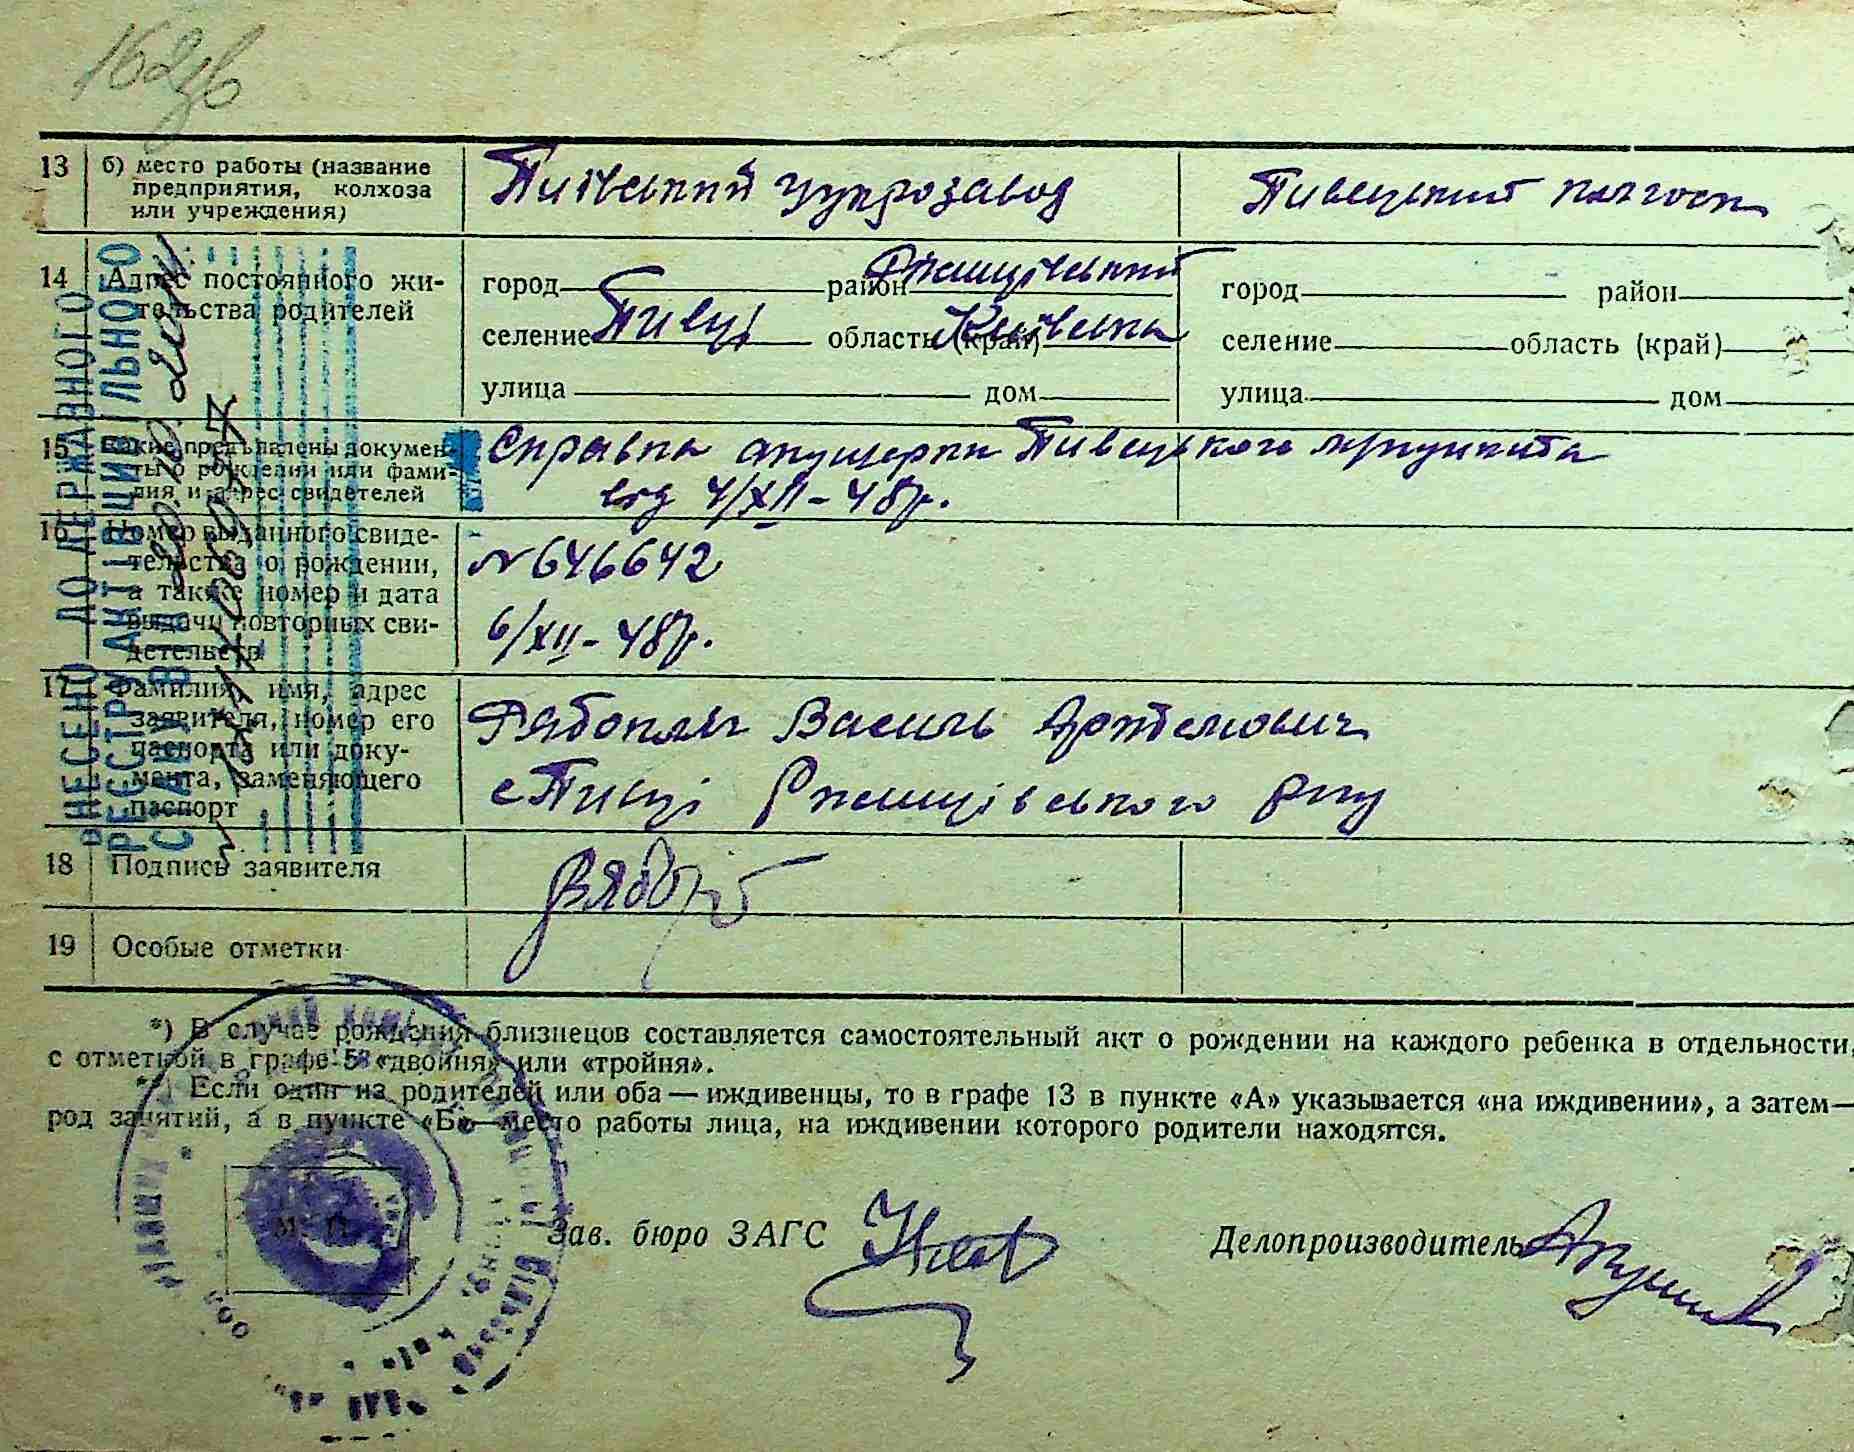 13 б) место работы (название
предприятия, колхоза
или учреждения)
цукрозавод
колгосп
14 Адрес постоянного жи-
тельства родителей
город район Ржищівський
селение Півці область (край) Київська
улица дом
город район
селение область (край)
улица дом
15 Какие предъявлены докумен-
ты о рождении или фами-
лия и адрес свидетелей
Справка акушерки Півецького медпункта
від 4/XII-48р.
16 Номер выданного свиде-
тельства о рождении,
а также номер и дата
выдачи повторных свидетельств
№ 646642
6/XII-48р.
17 Фамилия, имя, адрес
заявителя, номер его
паспорта или доку-
мента, заменяющего
паспорт
Василь Артемович
с Півці Ржищівського р-ну
18 Подпись заявителя
19 Особые отметки
ВНЕСЕНО ДО ДЕРЖАВНОГО
РЕЄСТРУ АКТІВ ЦИВІЛЬНОГО
СТАНУ
*) В случае рождения близнецов составляется самостоятельный акт о рождении на каждого ребенка в отдельности,
с отметкой в графе 5 «двойня» или «тройня».
**) Если один из родителей или оба — иждивенцы, то в графе 13 в пункте «А» указывается «на иждивении», а затем—
род занятий, а в пункте «Б»—место работы лица, на иждивении которого родители находятся.
М. П.
Зав. бюро ЗАГС
Делопроизводитель